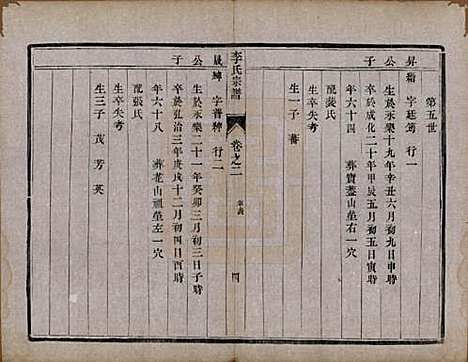 第五世
昇霱 字廷簿 行一
公 生於永樂十九年辛丑六月初九日申時
卒於成化二十年甲辰五月初五日寅時
子 年六十四 葬寶蓋山星右一穴
配裴氏
生卒失考
生一子 蕃
李氏宗譜
卷之二
四
晟 字普 行二
公 生於永樂二十一年癸卯三月初三日子時
卒於弘治三年庚戌十二月初四日酉時
子 年六十八 葬花山祖塋左一穴
配張氏
生卒失考
生三子 茂 芳 英